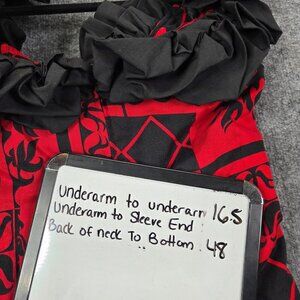 Underarm to underarm 16.5
Underarm to Sleeve End :
Back of neck To Bottom : 48